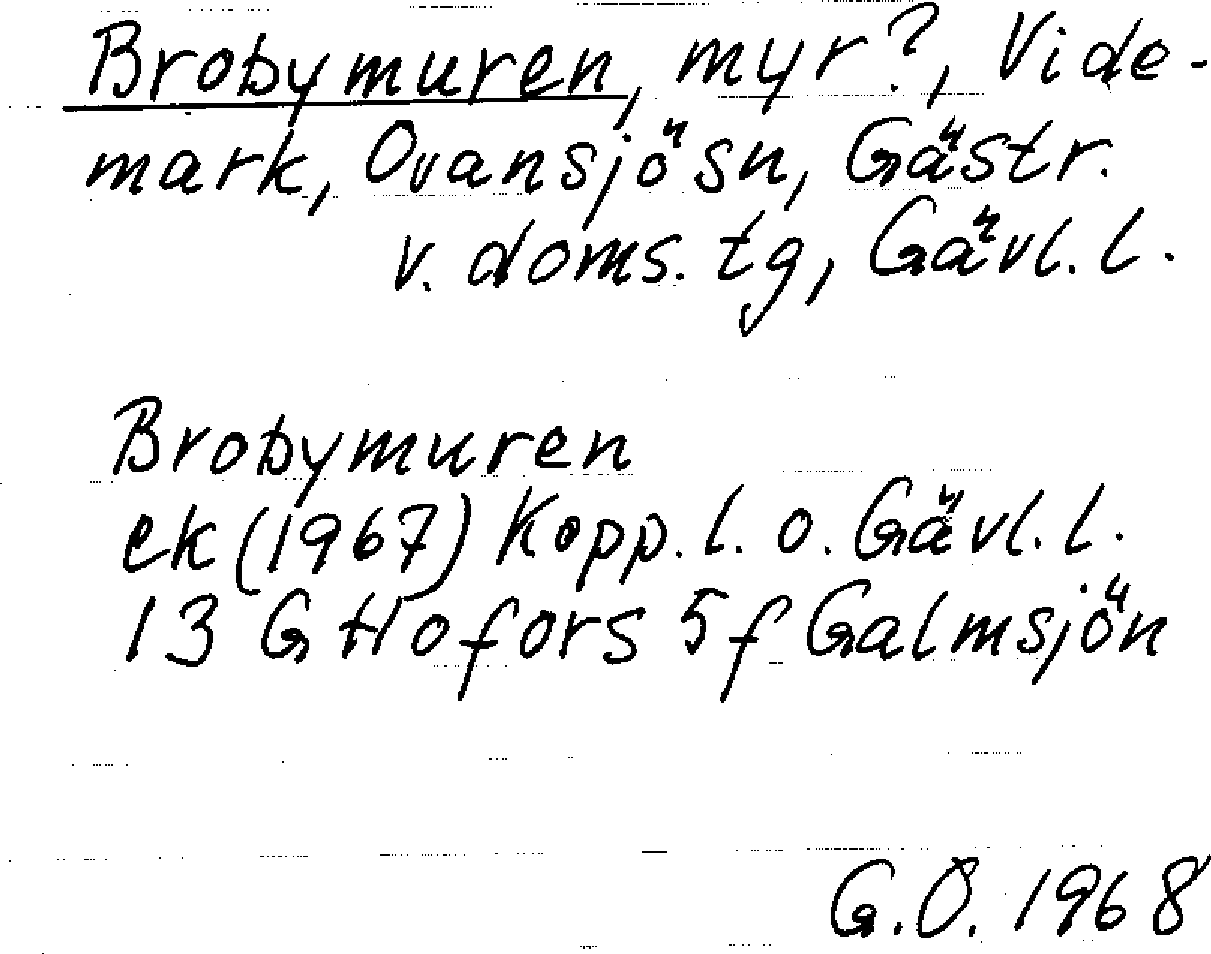 Brobymuren, myr?, Vide-
mark, Ovansjösn, Gästr.
v. doms. tg, Gävl. l.
Brobymuren
ek (1967) Kopp. l. o. Gävl. l.
13 G Hofors 5f Galmsjön
G.O. 1968